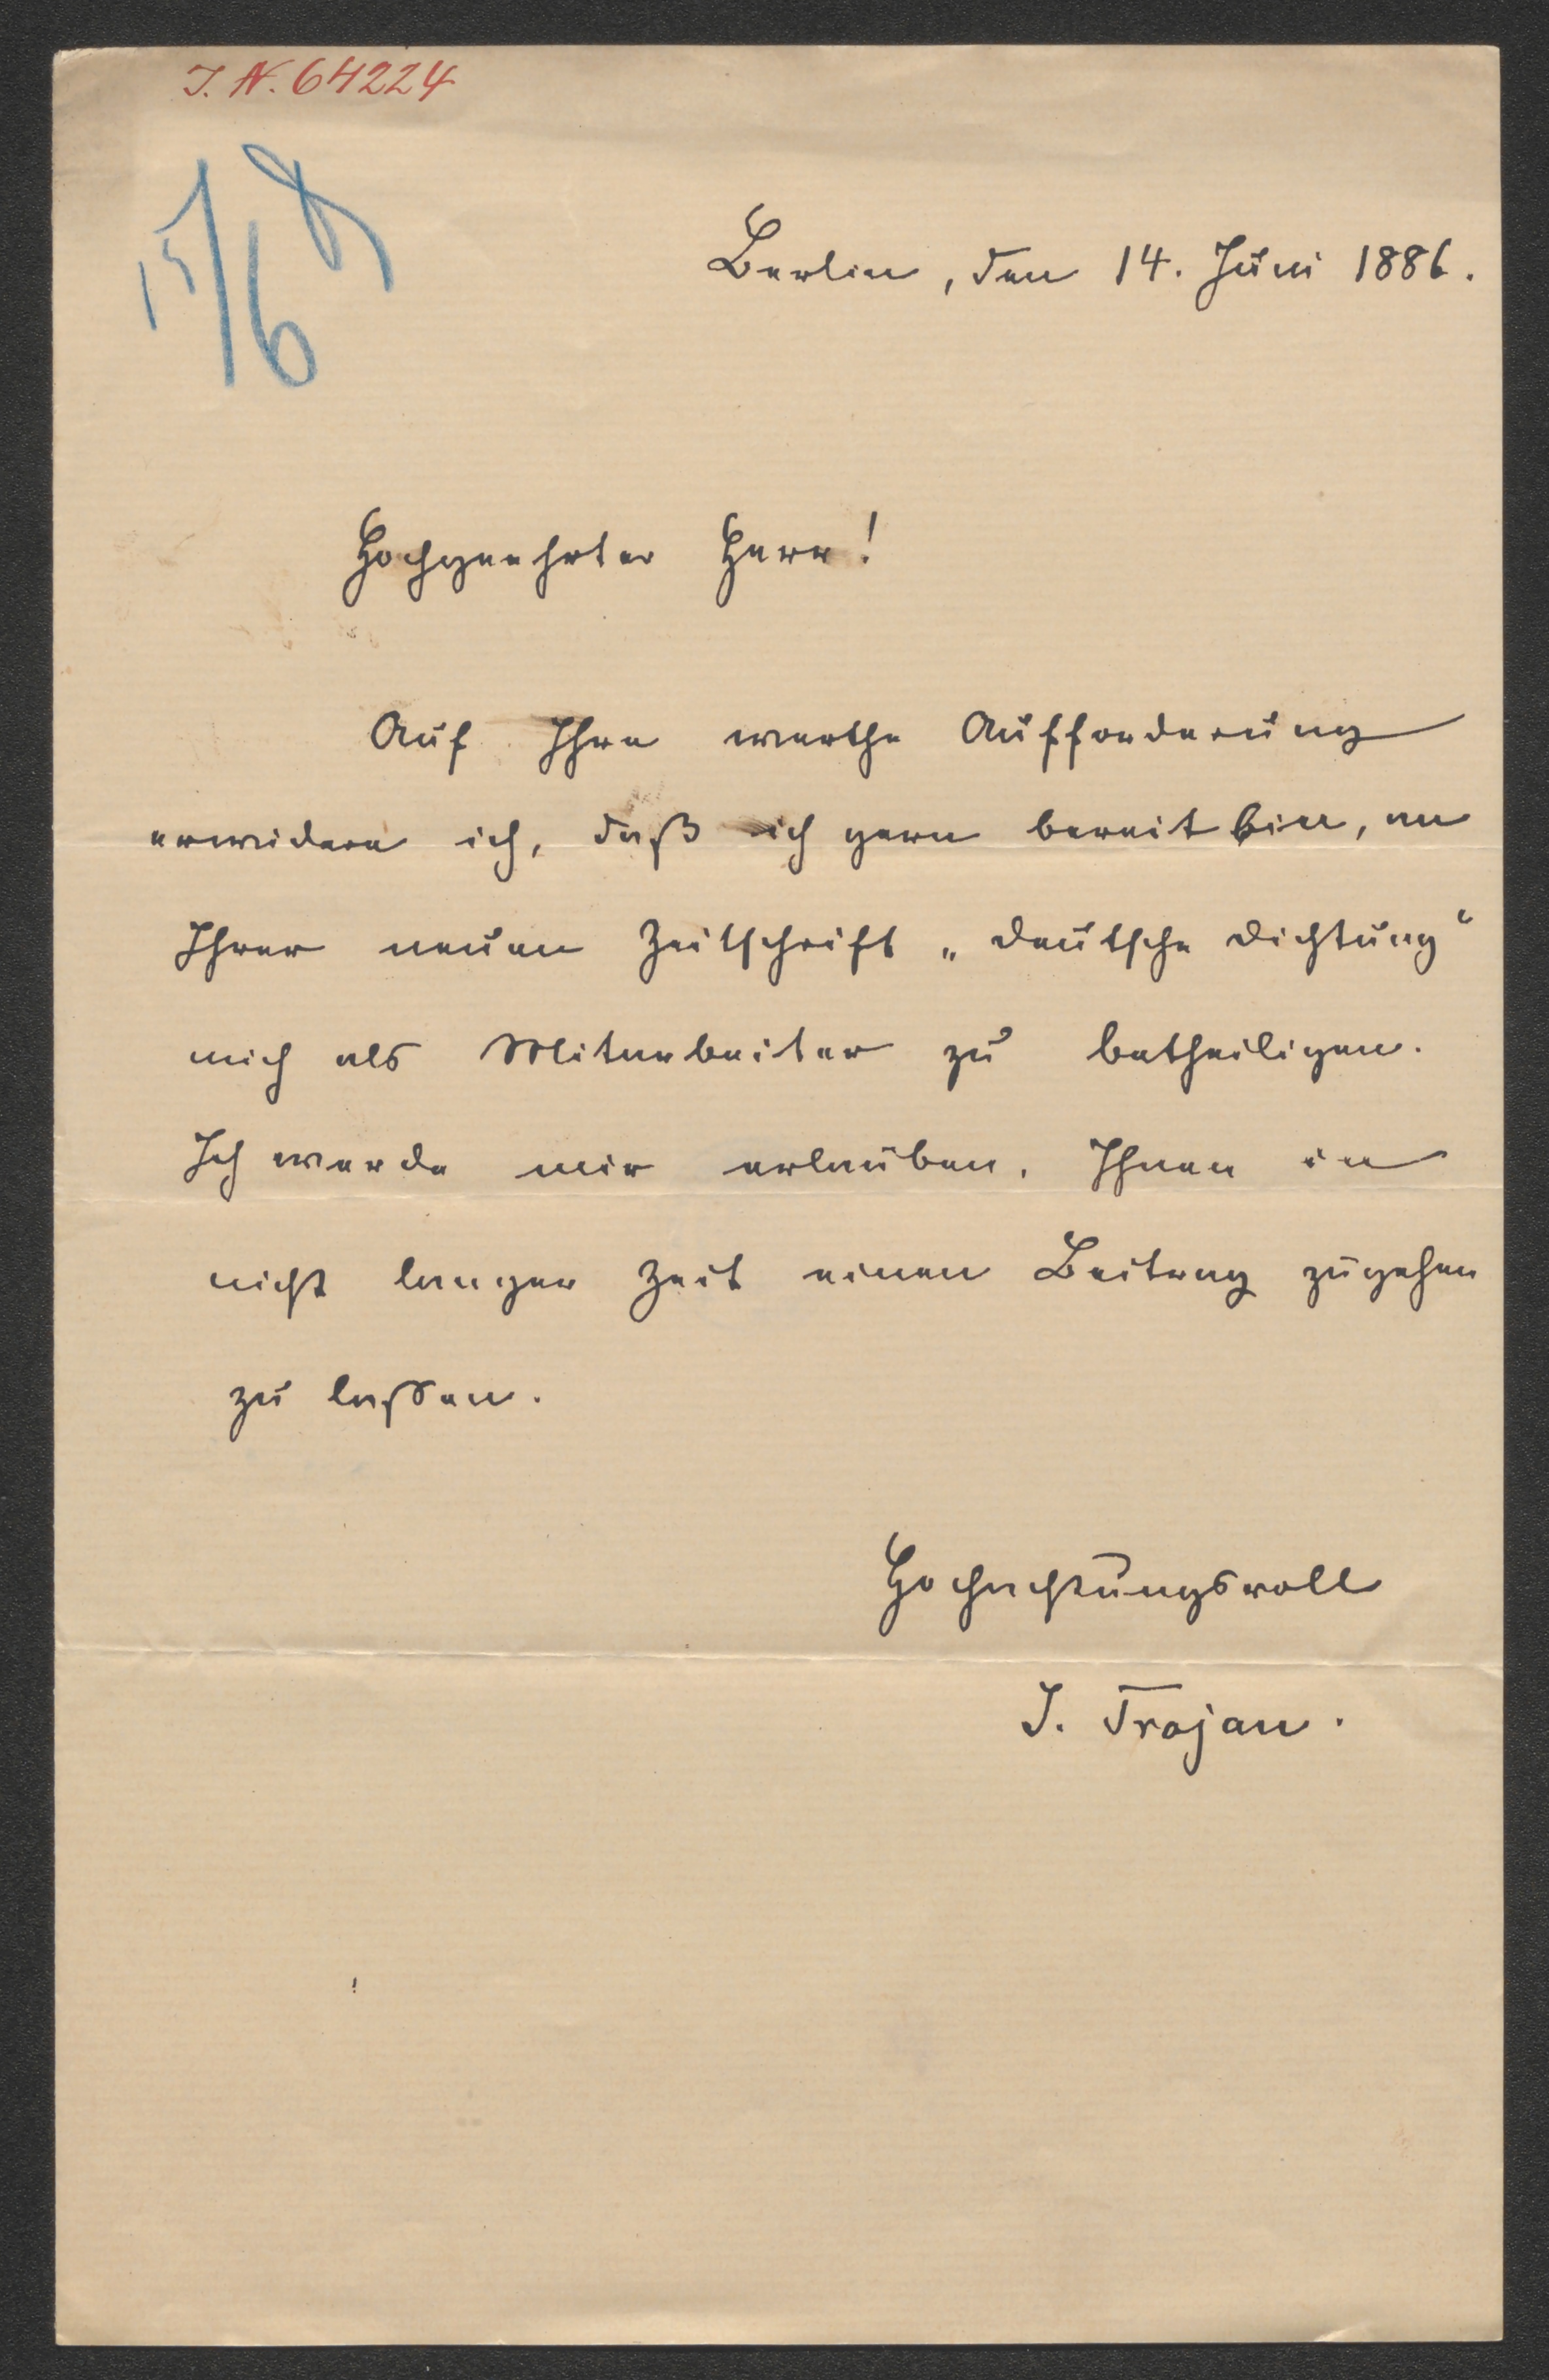 J. N. 64224
15/6
Berlin, den 14. Juni 1886.
Hochgeehrter Herr!
Auf Ihre werthe Aufforderung
erwidere ich, daß ich gern bereit bin, an
Ihrer neuen Zeitschrift „Deutsche Dichtung“
mich als Mitarbeiter zu betheiligen.
Ich werde mir erlauben, Ihnen in
nicht langer Zeit einen Beitrag zugehen
zu lassen.
Hochachtungsvoll
J. Trojan.